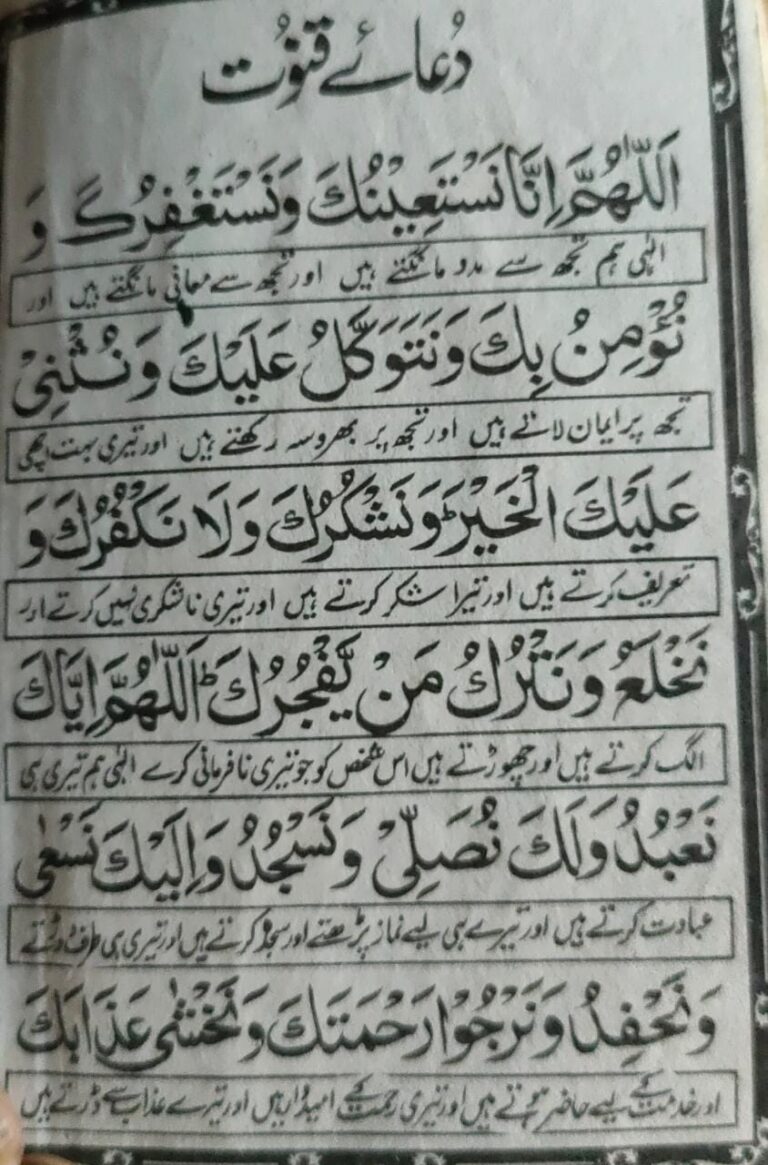 دُعائے قنوُت
اَللّٰهُمَّ اِنَّا نَسْتَعِيْنُكَ وَنَسْتَغْفِرُكَ وَ
الٰہی ہم تجھ سے مدد مانگتے ہیں اور تجھ سے معافی مانگتے ہیں اور
نُؤْمِنُ بِكَ وَنَتَوَكَّلُ عَلَيْكَ وَنُثْنِیْ
تجھ پر ایمان لاتے ہیں اور تجھ پر بھروسہ رکھتے ہیں اور تیری بہت اچھی
عَلَيْكَ الْخَيْرَؕ وَنَشْكُرُكَ وَلَا نَكْفُرُكَ وَ
تعریف کرتے ہیں اور تیرا شکر کرتے ہیں اور تیری ناشکری نہیں کرتے اور
نَخْلَعُ وَنَتْرُكُ مَنْ يَّفْجُرُكَؕ اَللّٰهُمَّ اِيَّاكَ
الگ کرتے ہیں اور چھوڑتے ہیں اس شخص کو جو تیری نافرمانی کرے الٰہی ہم تیری ہی
نَعْبُدُ وَلَكَ نُصَلِّیْ وَنَسْجُدُ وَاِلَيْكَ نَسْعٰی
عبادت کرتے ہیں اور تیرے ہی لیے نماز پڑھتے اور سجدہ کرتے ہیں اور تیری ہی طرف دوڑتے
وَنَحْفِدُ وَنَرْجُوْا رَحْمَتَكَ وَنَخْشٰی عَذَابَكَ
اور خدمت کے لیے حاضر ہوتے ہیں اور تیری رحمت کے امیدوار ہیں اور تیرے عذاب سے ڈرتے ہیں